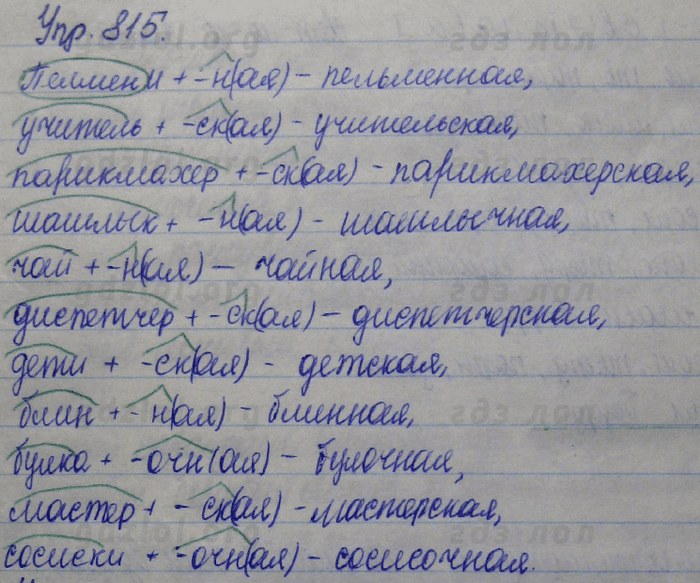 Упр. 815.
Пельмени + -н(ая) - пельменная,
учитель + -ск(ая) - учительская,
парикмахер + -ск(ая) - парикмахерская,
шашлык + -н(ая) - шашлычная,
чай + -н(ая) - чайная,
диспетчер + -ск(ая) - диспетчерская,
дети + -ск(ая) - детская,
блин + -н(ая) - блинная,
булка + -очн(ая) - булочная,
мастер + -ск(ая) - мастерская,
сосиски + -очн(ая) - сосисочная.